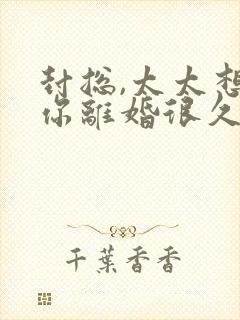 封总,太太想
你離婚很久
千葉香香